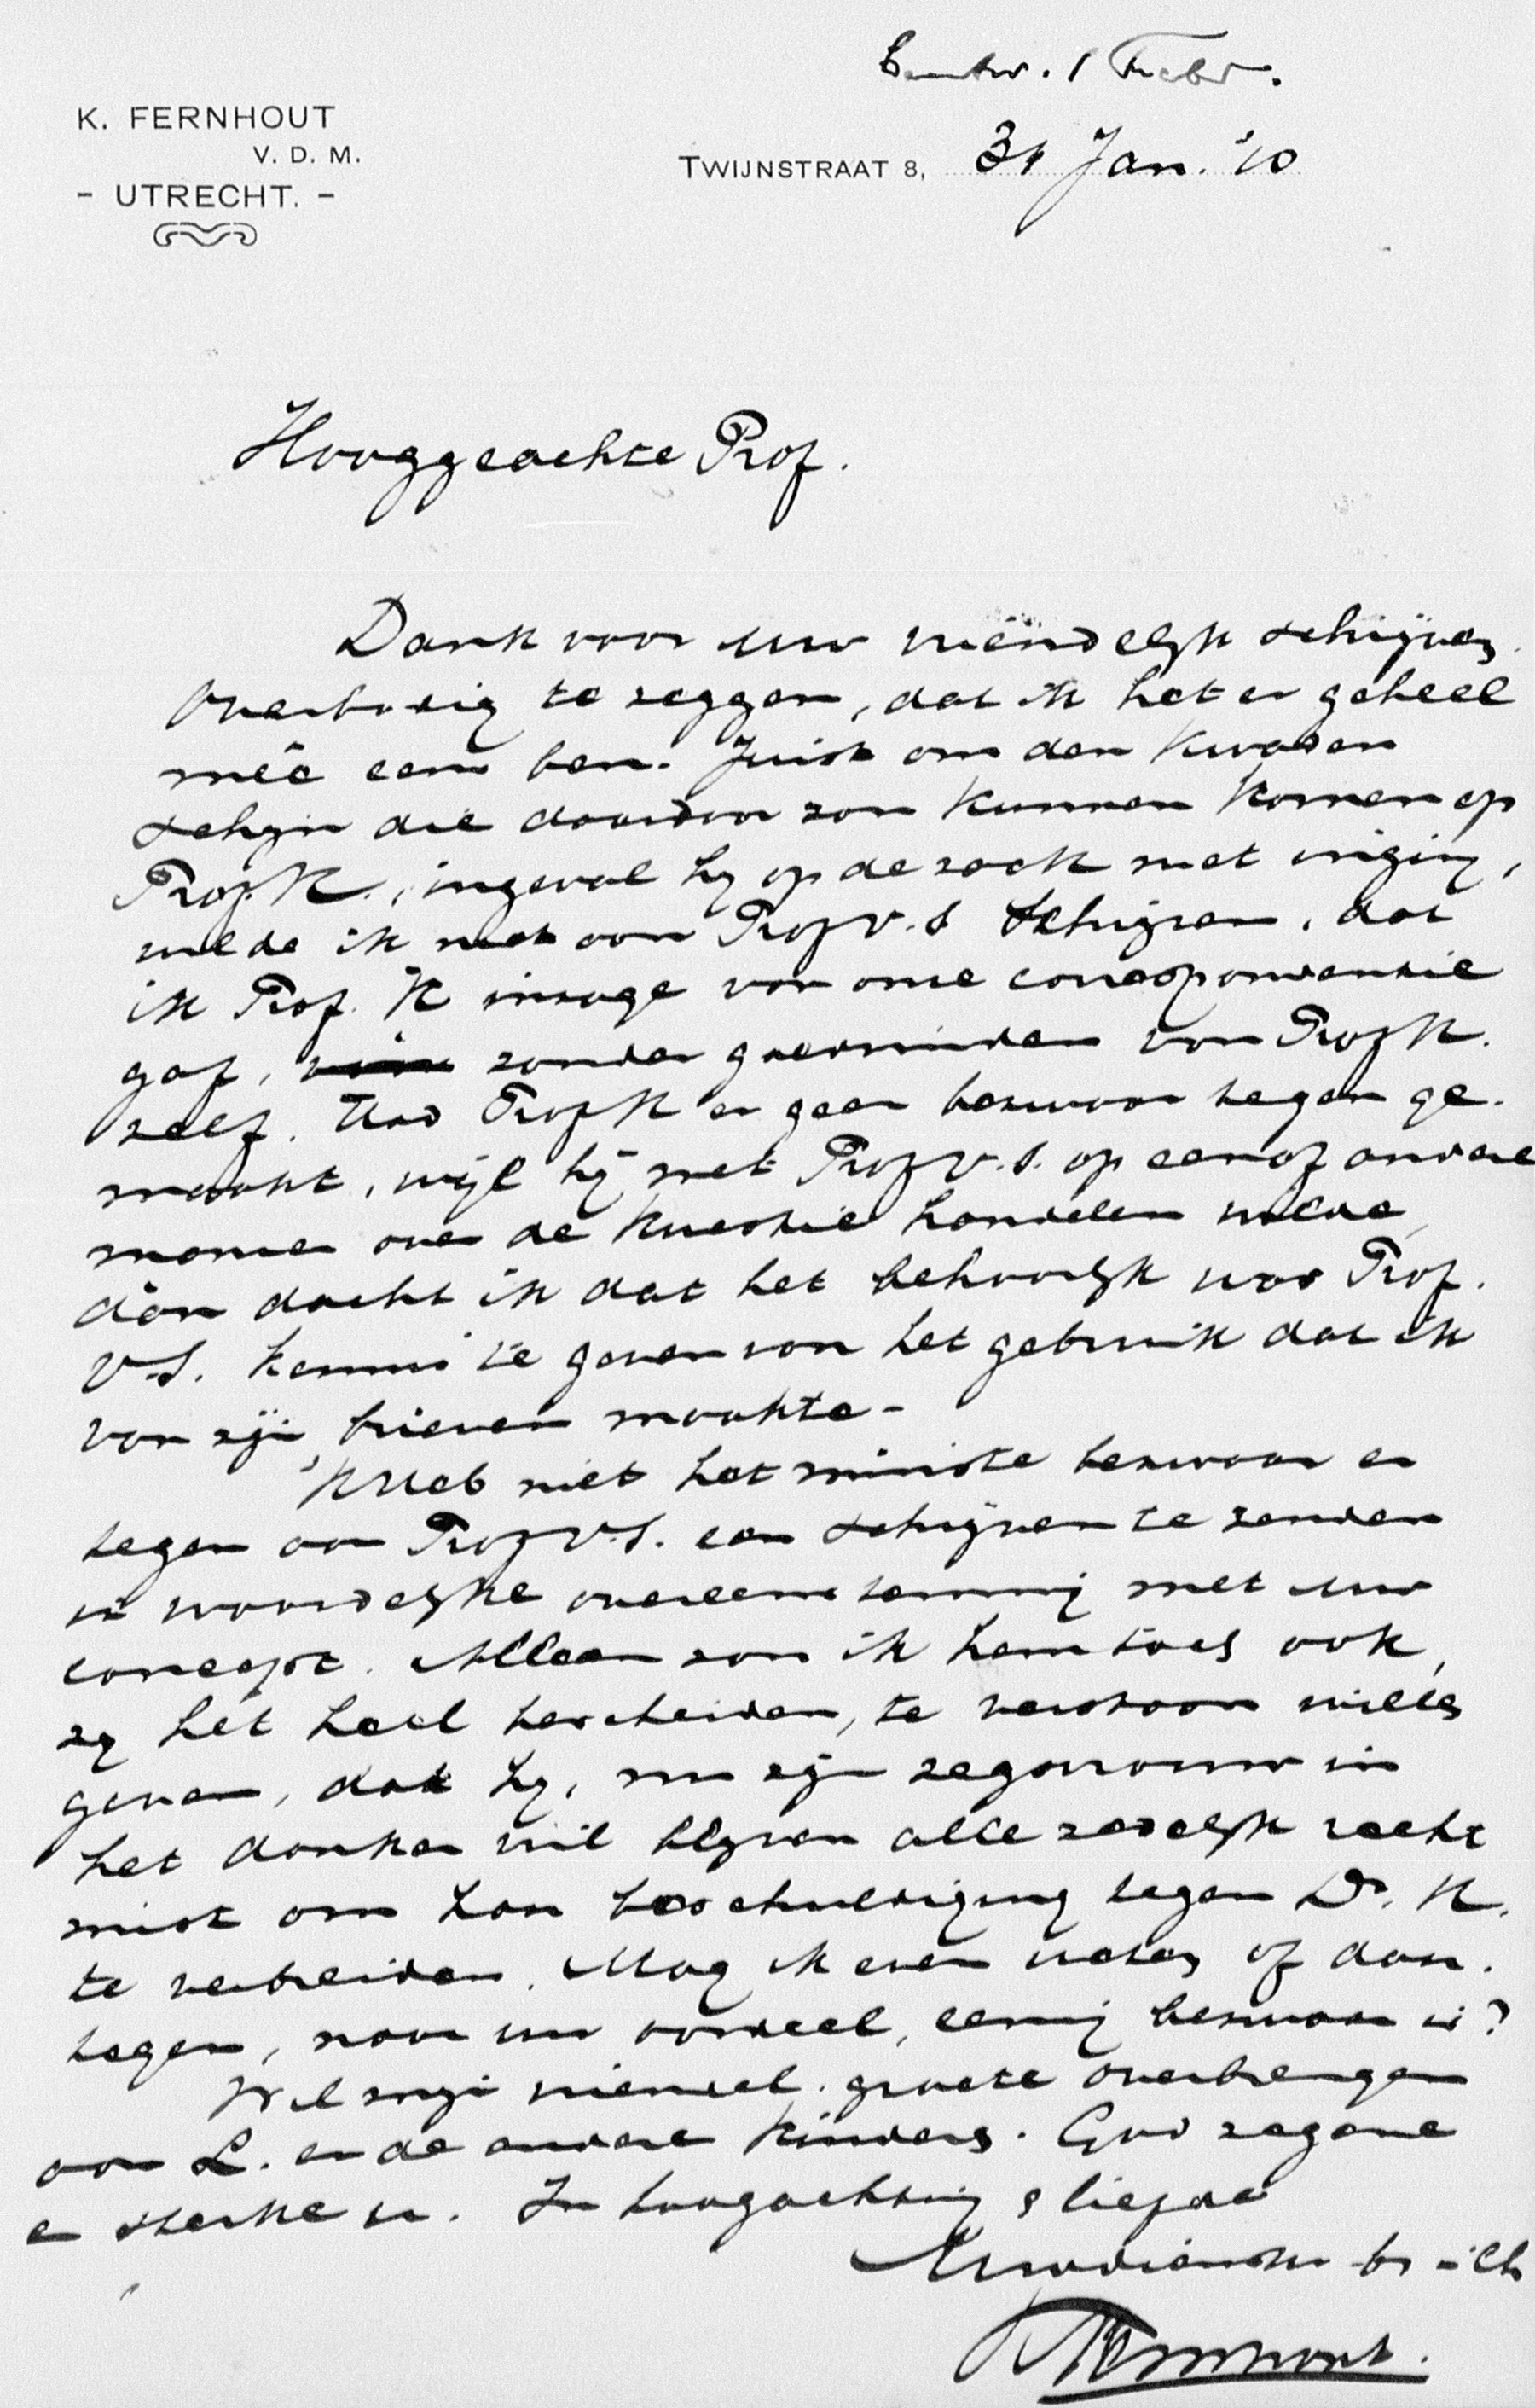 Beantw. 1 Febr.
K. FERNHOUT
V. D. M.
- UTRECHT. -
TWIJNSTRAAT 8, 31 Jan. '10
Hooggeachte Prof.
Dank voor uw vriendelijk schrijven.
Overbodig te zeggen, dat ik het er geheel
mêe eens ben. Juist om den kwaden
schijn die daardoor zou kunnen komen op
Prof. K., ingeval hij op de zaak niet inging,
wilde ik niet aan Prof v. S schrijven, dat
ik Prof. K inzage van onze correspondentie
gaf, zonder goedvinden van Prof K.
zelf. Had Prof K er geen bezwaar tegen ge-
maakt, wijl hij met Prof V. S. op een of andere
manier over de kwestie handelen wilde,
dàn dacht ik dat het behoorlijk was Prof.
V. S. kennis te geven van het gebruik dat ik
van zijn brieven maakte -
'k Heb niet het minste bezwaar er
tegen aan Prof V. S. een schrijven te zenden
in woordelijke overeenstemming met uw
concept. Alleen zou ik hem toch ook,
zij het heel bescheiden, te verstaan willen
geven, dat hij, nu zijn zegsvrouw in
het donker wil blijven alle zedelijk recht
mist om haar beschuldiging tegen Dr. K.
te verbreiden. Mag ik even weten of daar-
tegen, naar uw oordeel, eenig bezwaar is?
Wil mijn vriendel. groete overbrengen
aan L. en de andere kinders. God zegene
en sterke u. In hoogachting & liefde
Uw dienstw. br. in Ch
K Fernhout.